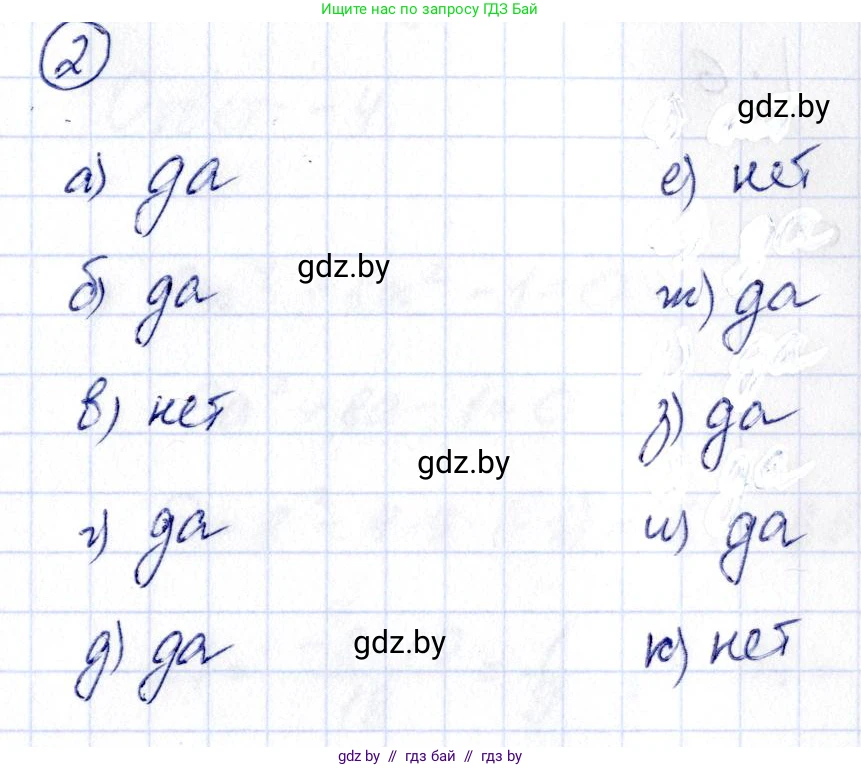 Ищите нас по запросу ГДЗ Бай
2
gdz.by
а) да
е) нет
б) да
gdz.by
ж) да
в) нет
з) да
gdz.by
г) да
и) да
д) да
gdz.by
к) нет
gdz by // гдз бай // гдз by